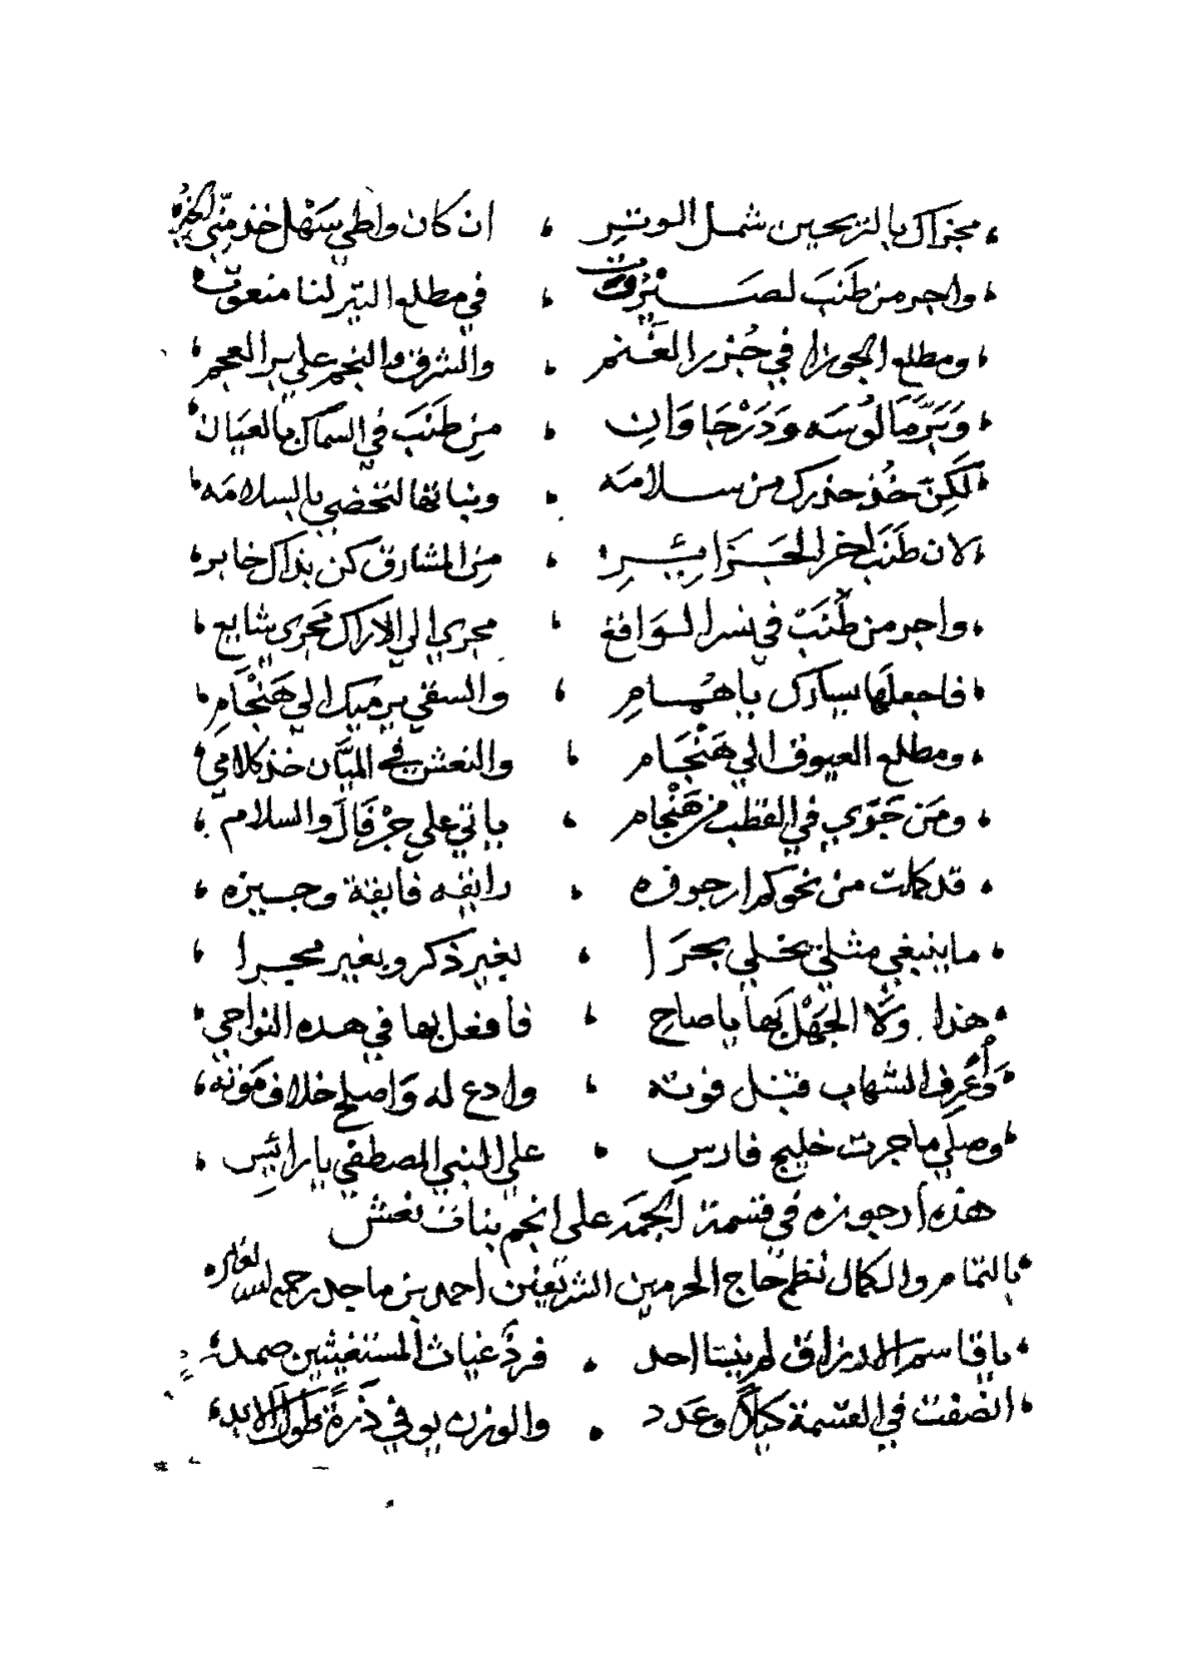 مجراك بالريحين شمل الوتر ، ان كان واطي سهل خذ مني الخبر
واجر من طنب لصير ، في مطلع التير لنا منعوت
ومطلع الجوزا في جزر الغنم ، والشرق والنجم علي بر العجم
وبر مالوسه ودرجاوان ، من طنب في السماك بالعيان
لكن خذ حذرك من سلامه ، وبناتها لتحضي بالسلامه
لان طنب اخر الجزائر ، من المشارق كن بذاك خابر
واجر من طنب في نسر الواقع ، مجري الي الاراك مجري شايع
فاجعلها يسارك يا همام ، والسقي يرميك الي هنجام
ومطلع العيوق الي هنجام ، والنعش في الميان خذ كلامي
ومن حوي في القطب من هنجام ، ياتي علي جرفال والسلام
قد كملت من نحوكم ارجوزه ، رايقه فايقة وجيزه
ما ينبغي مثلي يخلي بحرا ، بغير ذكر وبغير مجرا
هذا ولا الجهل بها يا صاح ، فافعل بها في هده النواحي
واعرف الشهاب قبل فوته ، وادع له واصلح خلاف موته
وصلي ما جرت خليج فارس ، علي النبي المصطفي يا رائس
هذه ارجوزه في قسمة الجمة علي انجم بنات نعش
بالتمام والكمال نظم حاج الحرمين الشريفين احمد بن ماجد رحمه الله تعالي
يا قاسم الارزاق لم ينسا احد ، فرد غياث المستغيثين صمد
انصفت في القسمة كيلا وعدد ، والوزن يوفي ذرة طول الابد